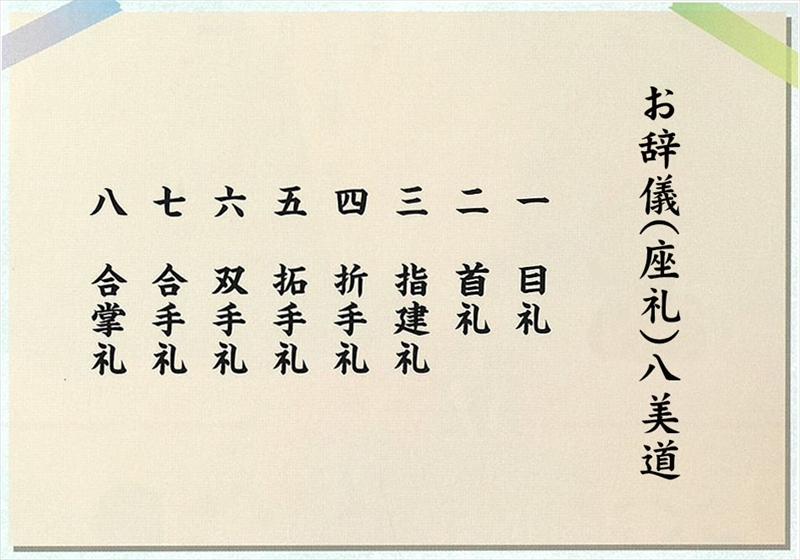 お辞儀(座礼)八美道
一 目礼
二 首礼
三 指建礼
四 折手礼
五 拓手礼
六 双手礼
七 合手礼
八 合掌礼